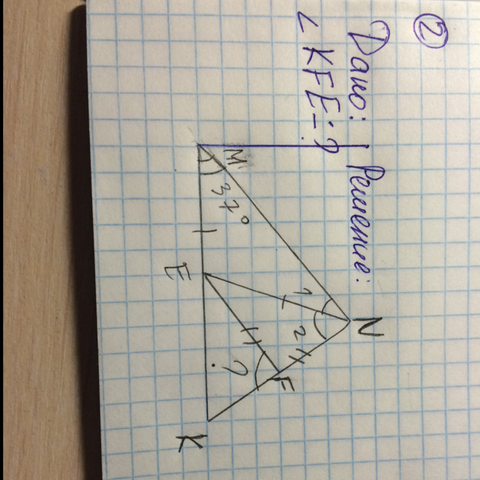 ②
Дано:
∠KFE=?
Решение:
M
37°
N
1
2
E
F
?
K